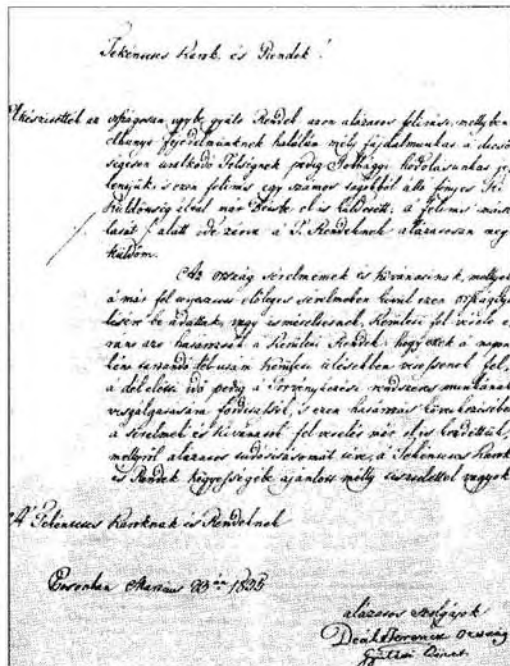 Tekéntetes Karok, és Rendek!
Elkészítették az országosan egybe gyűlt Rendek azon alázatos felírást, mellyben
elhunyt fejedelmünknek halálán mély fájdalmunkat, a dicső
ségesen uralkodó Felségnek pedig Jobbágyi hódolásunkat je
lentjük, s ezen felírás egy számos tagokból álló fényes
Küldöttség által már Bécsbe el is küldetett, a felírás mássa
lását ∙/∙ alatt ide zárva a T. Rendeknek alázatosan meg
küldöm.
Az ország sérelmeinek és kívánatinak, mellyek
a már fel terjesztett előleges sérelmeken kívül ezen országgyű
lésére be adattak, vagy ismételtetnek, Kerületi fel vétele
ránt azt határozták a Kerületi Rendek, hogy ezek a napon
ként tartandó dél utáni kerületi ülésekben vétessenek fel,
a dél előtti idő pedig a Törvénykezési rendszeres munkának
vizsgálgatására fordíttassék, s ezen határozás következésében
a sérelmek és kívánatok fel vételét már el is kezdettük,
mellyről alázatos tudósításomat téve, a Tekéntetes Karok
és Rendek kegyességébe ajánlott mély tisztelettel vagyok
A' Tekéntetes Karoknak és Rendeknek
Posonban Martius 23án 1835
alázatos szolgájok
Deák Ferencz Ország
Gyűlési Követ